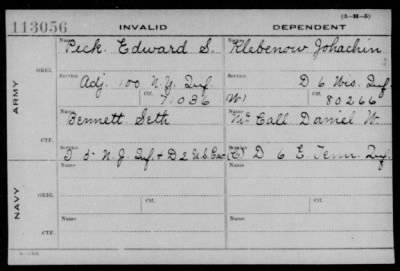 (3-H-5)
113056 INVALID DEPENDENT
Name Name
Peck. Edward S. Klebenow Johachin
ORIG. Service Service
Adj. 100 N.Y. Inf. D 6 Wis. Inf
Ctf. Ctf.
71036 W1 80266
ARMY
Name Name
Bennett Seth McCall Daniel W.
CTF. Service Service
I 5 N.J. Inf. & D 2 U.S. Cav. (C) D 6 E Tenn. Inf.
Name Name
ORIG. Service Service
NAVY
Name Name
CTF. Service Service